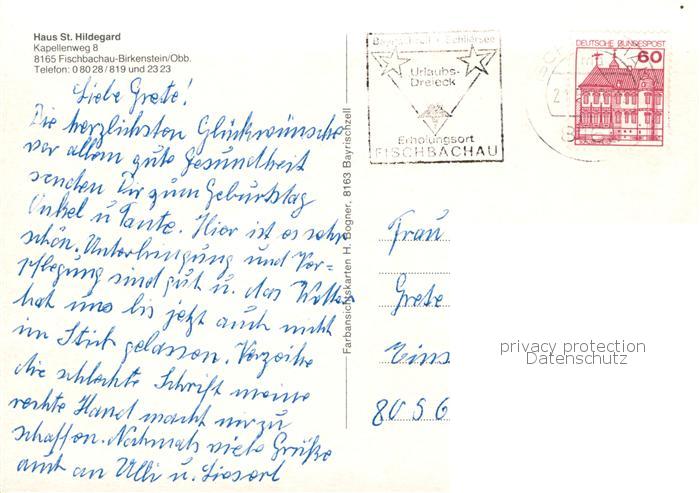 Haus St. Hildegard
Kapellenweg 8
8165 Fischbachau-Birkenstein/Obb.
Telefon: 0 80 28 / 819 und 23 23
Liebe Grete!
Die herzlichsten Glückwünsche
vor allem gute Gesundheit
senden Dir zum Geburtstag
Onkel u Tante. Hier ist es sehr
schön. Unterbringung und Ver=
pflegung sind gut u. das Wetter
hat uns bis jetzt auch nicht
im Stich gelassen. Verzeihe
die schlechte Schrift meine
rechte Hand macht mir zu
schaffen. Nochmals viele Grüße
auch an Ulli u. Lieserl
Farbansichtskarten H. Bogner, 8163 Bayrischzell
Bayrischzell Schliersee
Urlaubs-
Dreieck
Erholungsort
FISCHBACHAU
DEUTSCHE BUNDESPOST
60
Frau
Grete
Eins
8056
privacy protection
Datenschutz